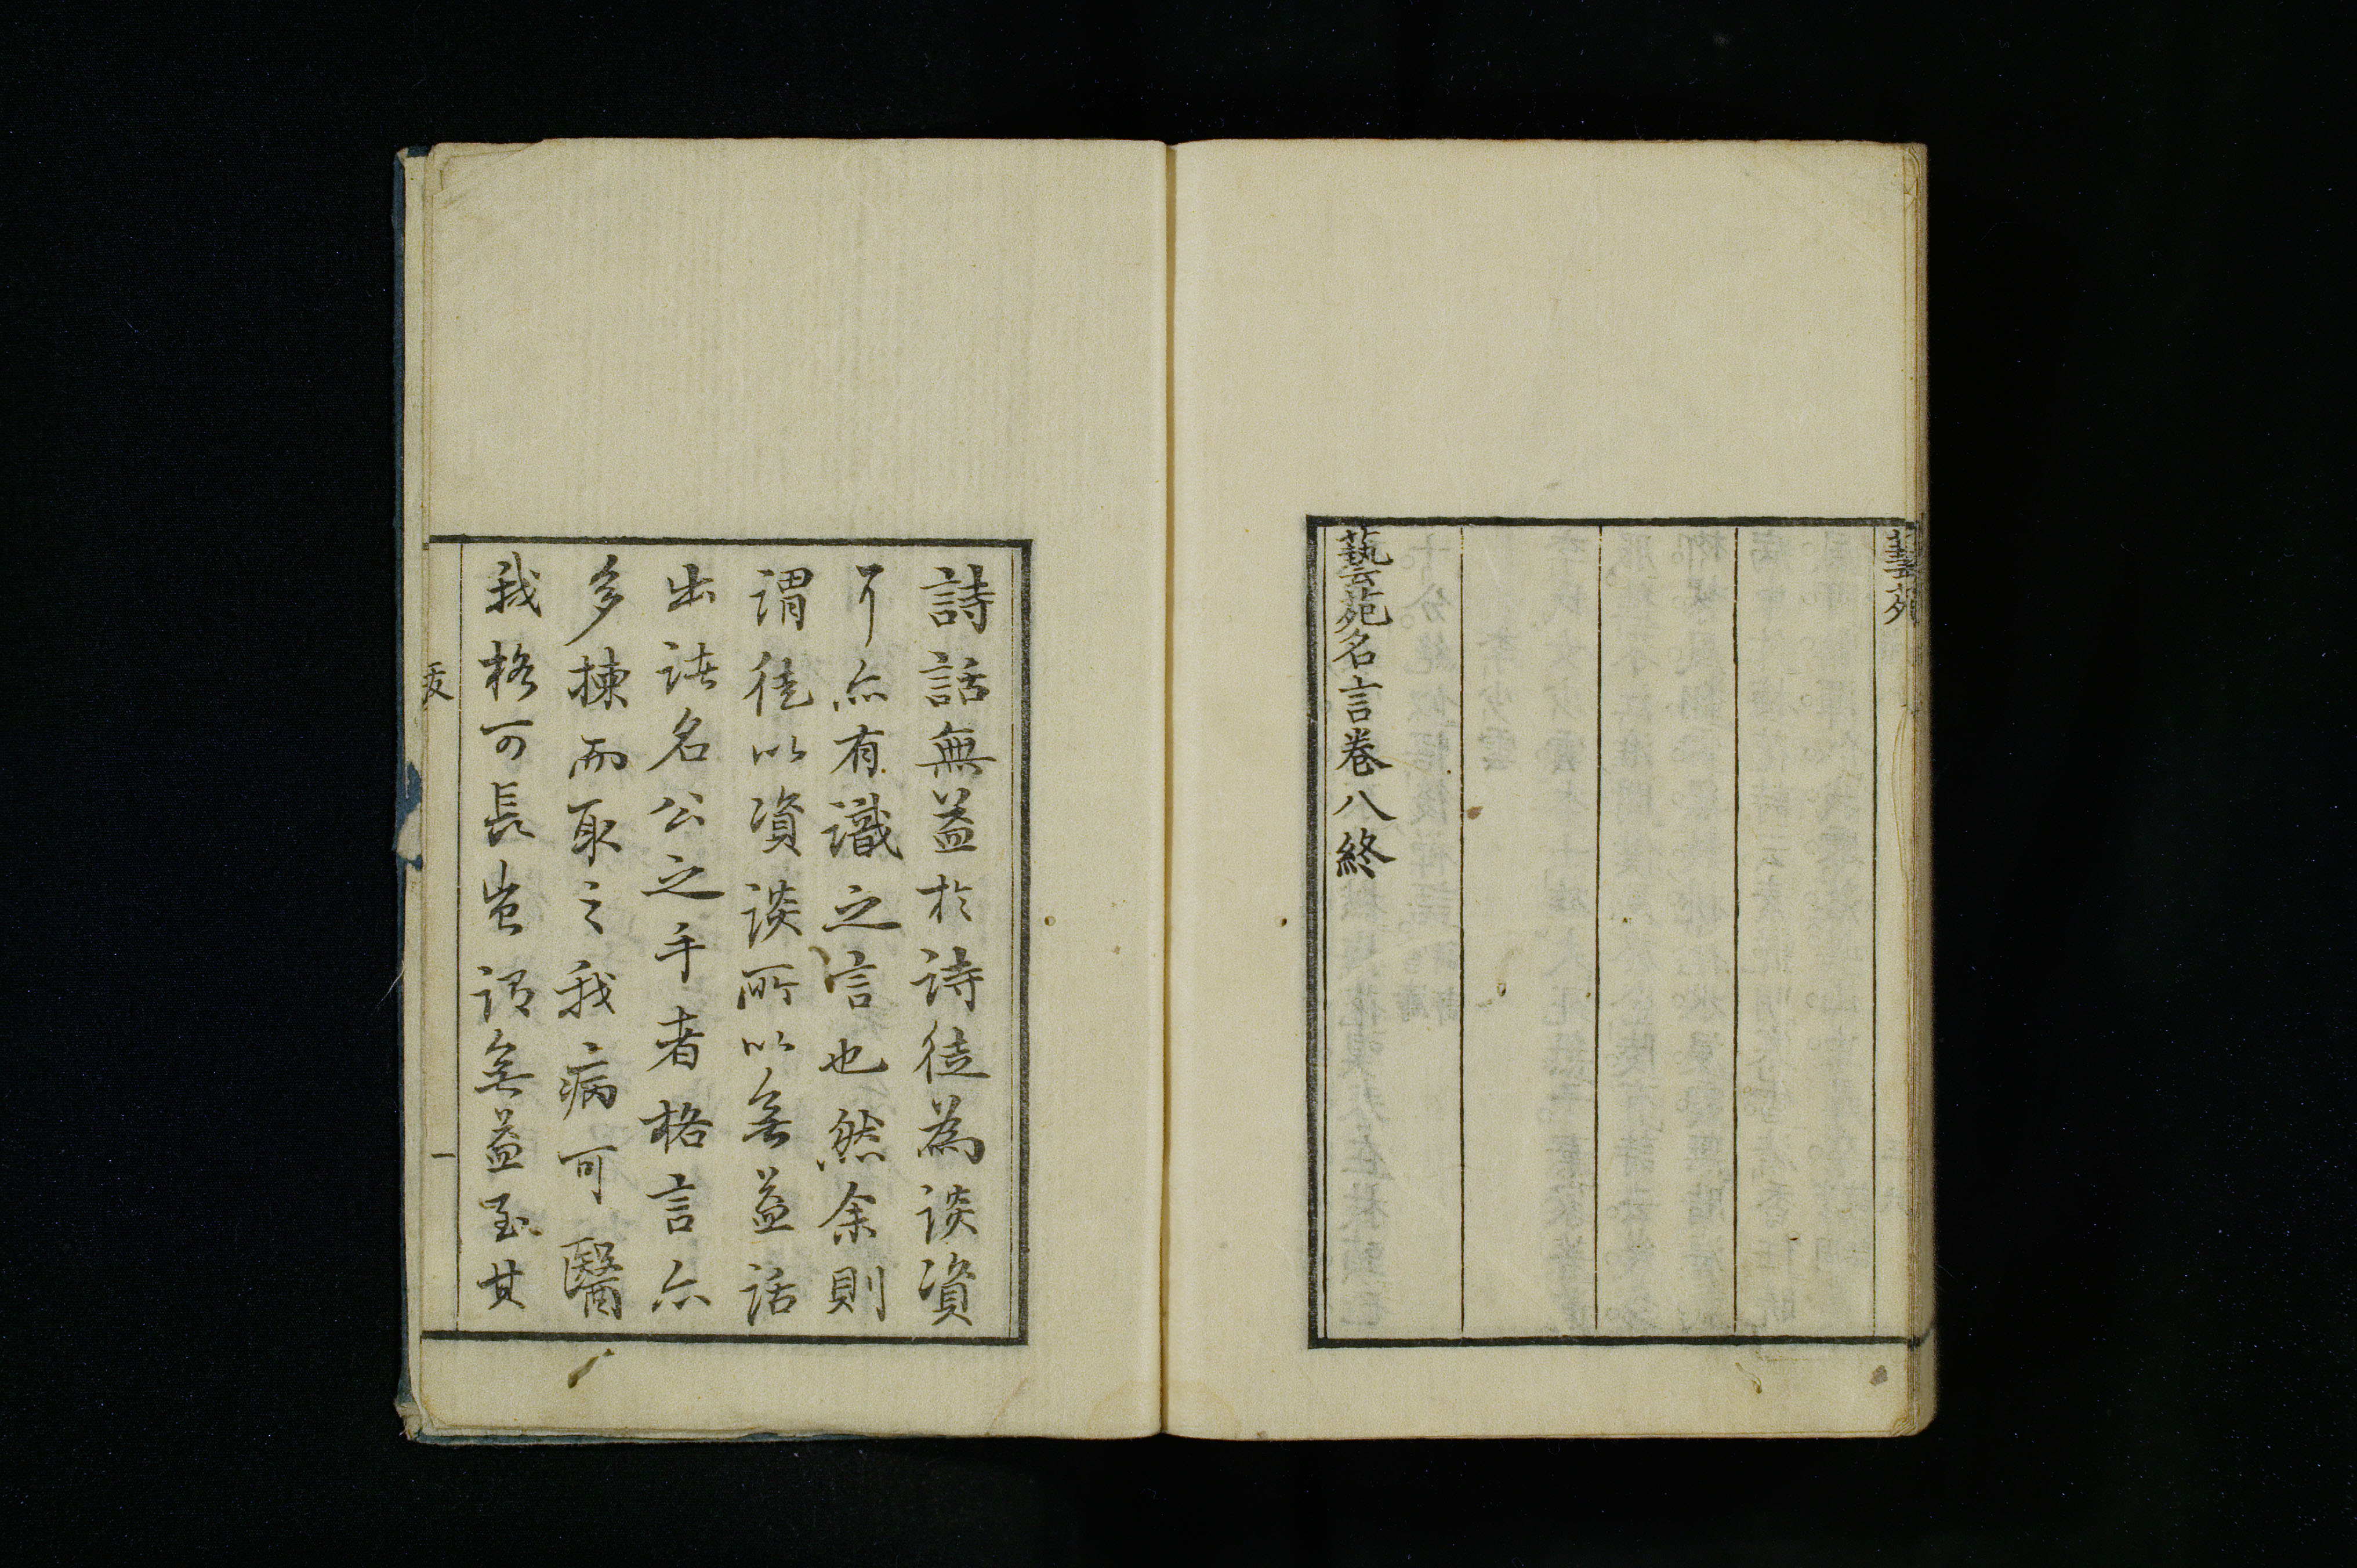 藝苑
藝苑名言卷八終
詩話無益於詩徒為談資
了亦有識之言也然余則
謂徒以資談所以無益話
出諸名公之手者格言亦
多揀而取之我病可醫
我格可長豈謂無益至其
跋
一